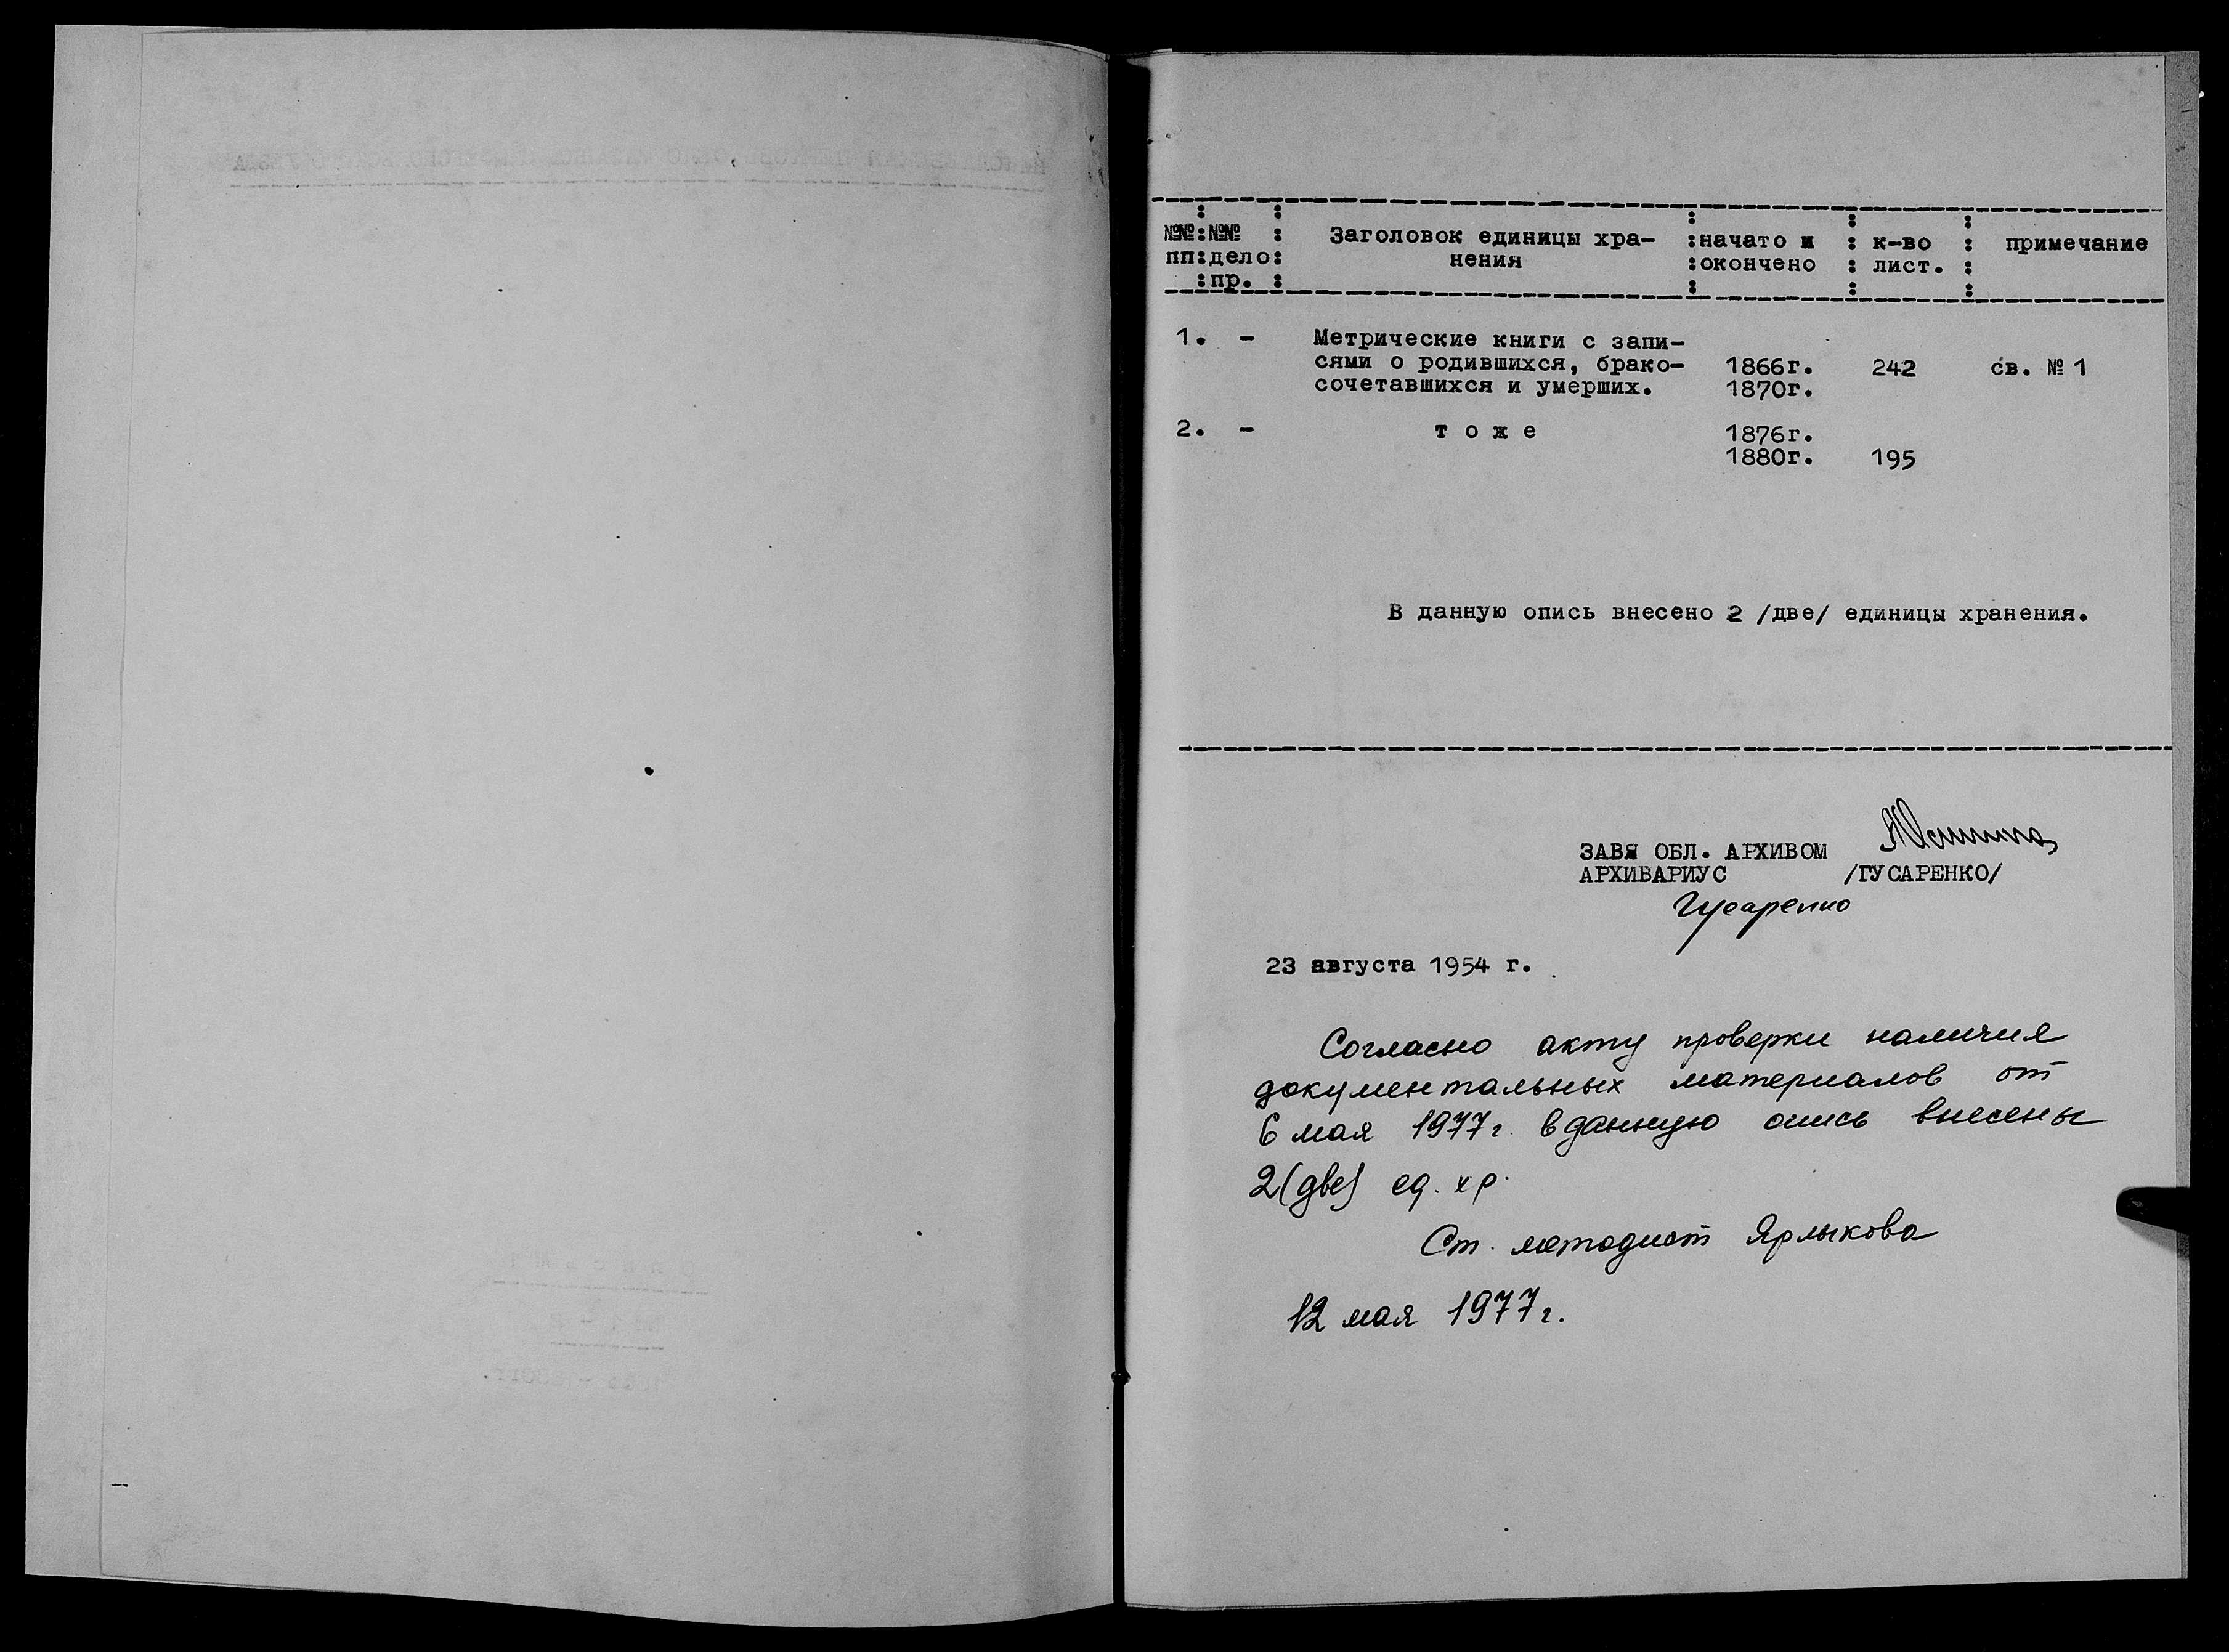 №№:№№ : Заголовок единицы хра- :начато и : к-во : примечание
пп:дело: нения :окончено : лист. :
:пр. :
1. - Метрические книги с запи-
сями о родившихся, брако- 1866г. 242 св. № 1
сочетавшихся и умерших. 1870г.
2. - т о ж е 1876г.
1880г. 195
В данную опись внесено 2 /две/ единицы хранения.
ЗАВЯ ОБЛ. АРХИВОМ
АРХИВАРИУС /ГУСАРЕНКО/
Гусаренко
23 августа 1954 г.
Согласно акту проверки наличия
документальных материалов от
6 мая 1977г. в данную опись внесены
2(две) ед. хр.
Ст. методист Ярлыкова
12 мая 1977г.